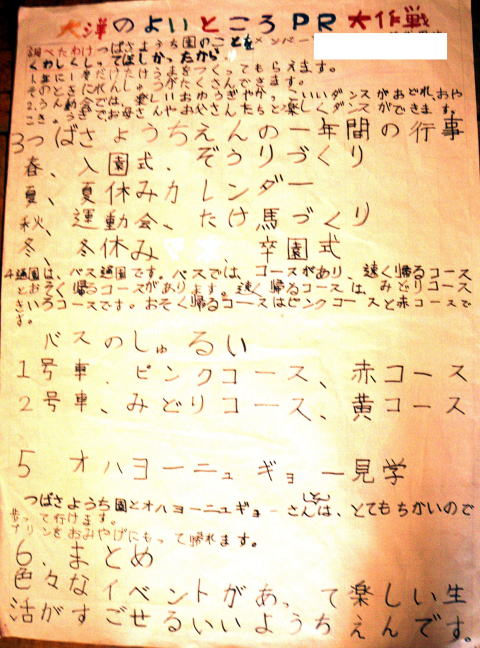 大洋のよいところPR大作戦
調べたわけ つばさようち園のことを メンバー
くわしくしってほしかったから。
1.年に1まだけたけうまをつくってもらえます。
2.うん動会では、楽しいおゆうぎやかっこいいダンスがあどれ、おや
3つばさようちえんの一年間の行事
春、入園式、ぞうりづくり
夏、夏休みカレンダー
秋、運動会、たけ馬づくり
冬、冬休み 卒園式
4通園は、バス通園です。バスでは、コースがあり、速く帰るコース
とおそく帰るコースがあります。速く帰るコースは、みどりコース
きいろコースです。おそく帰るコースはピンクコースと赤コースで
す。
バスのしゅるい
1号車、ピンクコース、赤コース
2号車、みどりコース、黄コース
5 オハヨーニュギョー見学
つばさようち園とオハヨーニュギョーさんは、とてもちかいので
歩って行けます。
プリンをおみやげにもって帰れます。
6、まとめ
色々なイベントがあって楽しい生
活がすごせるいいようちえんです。